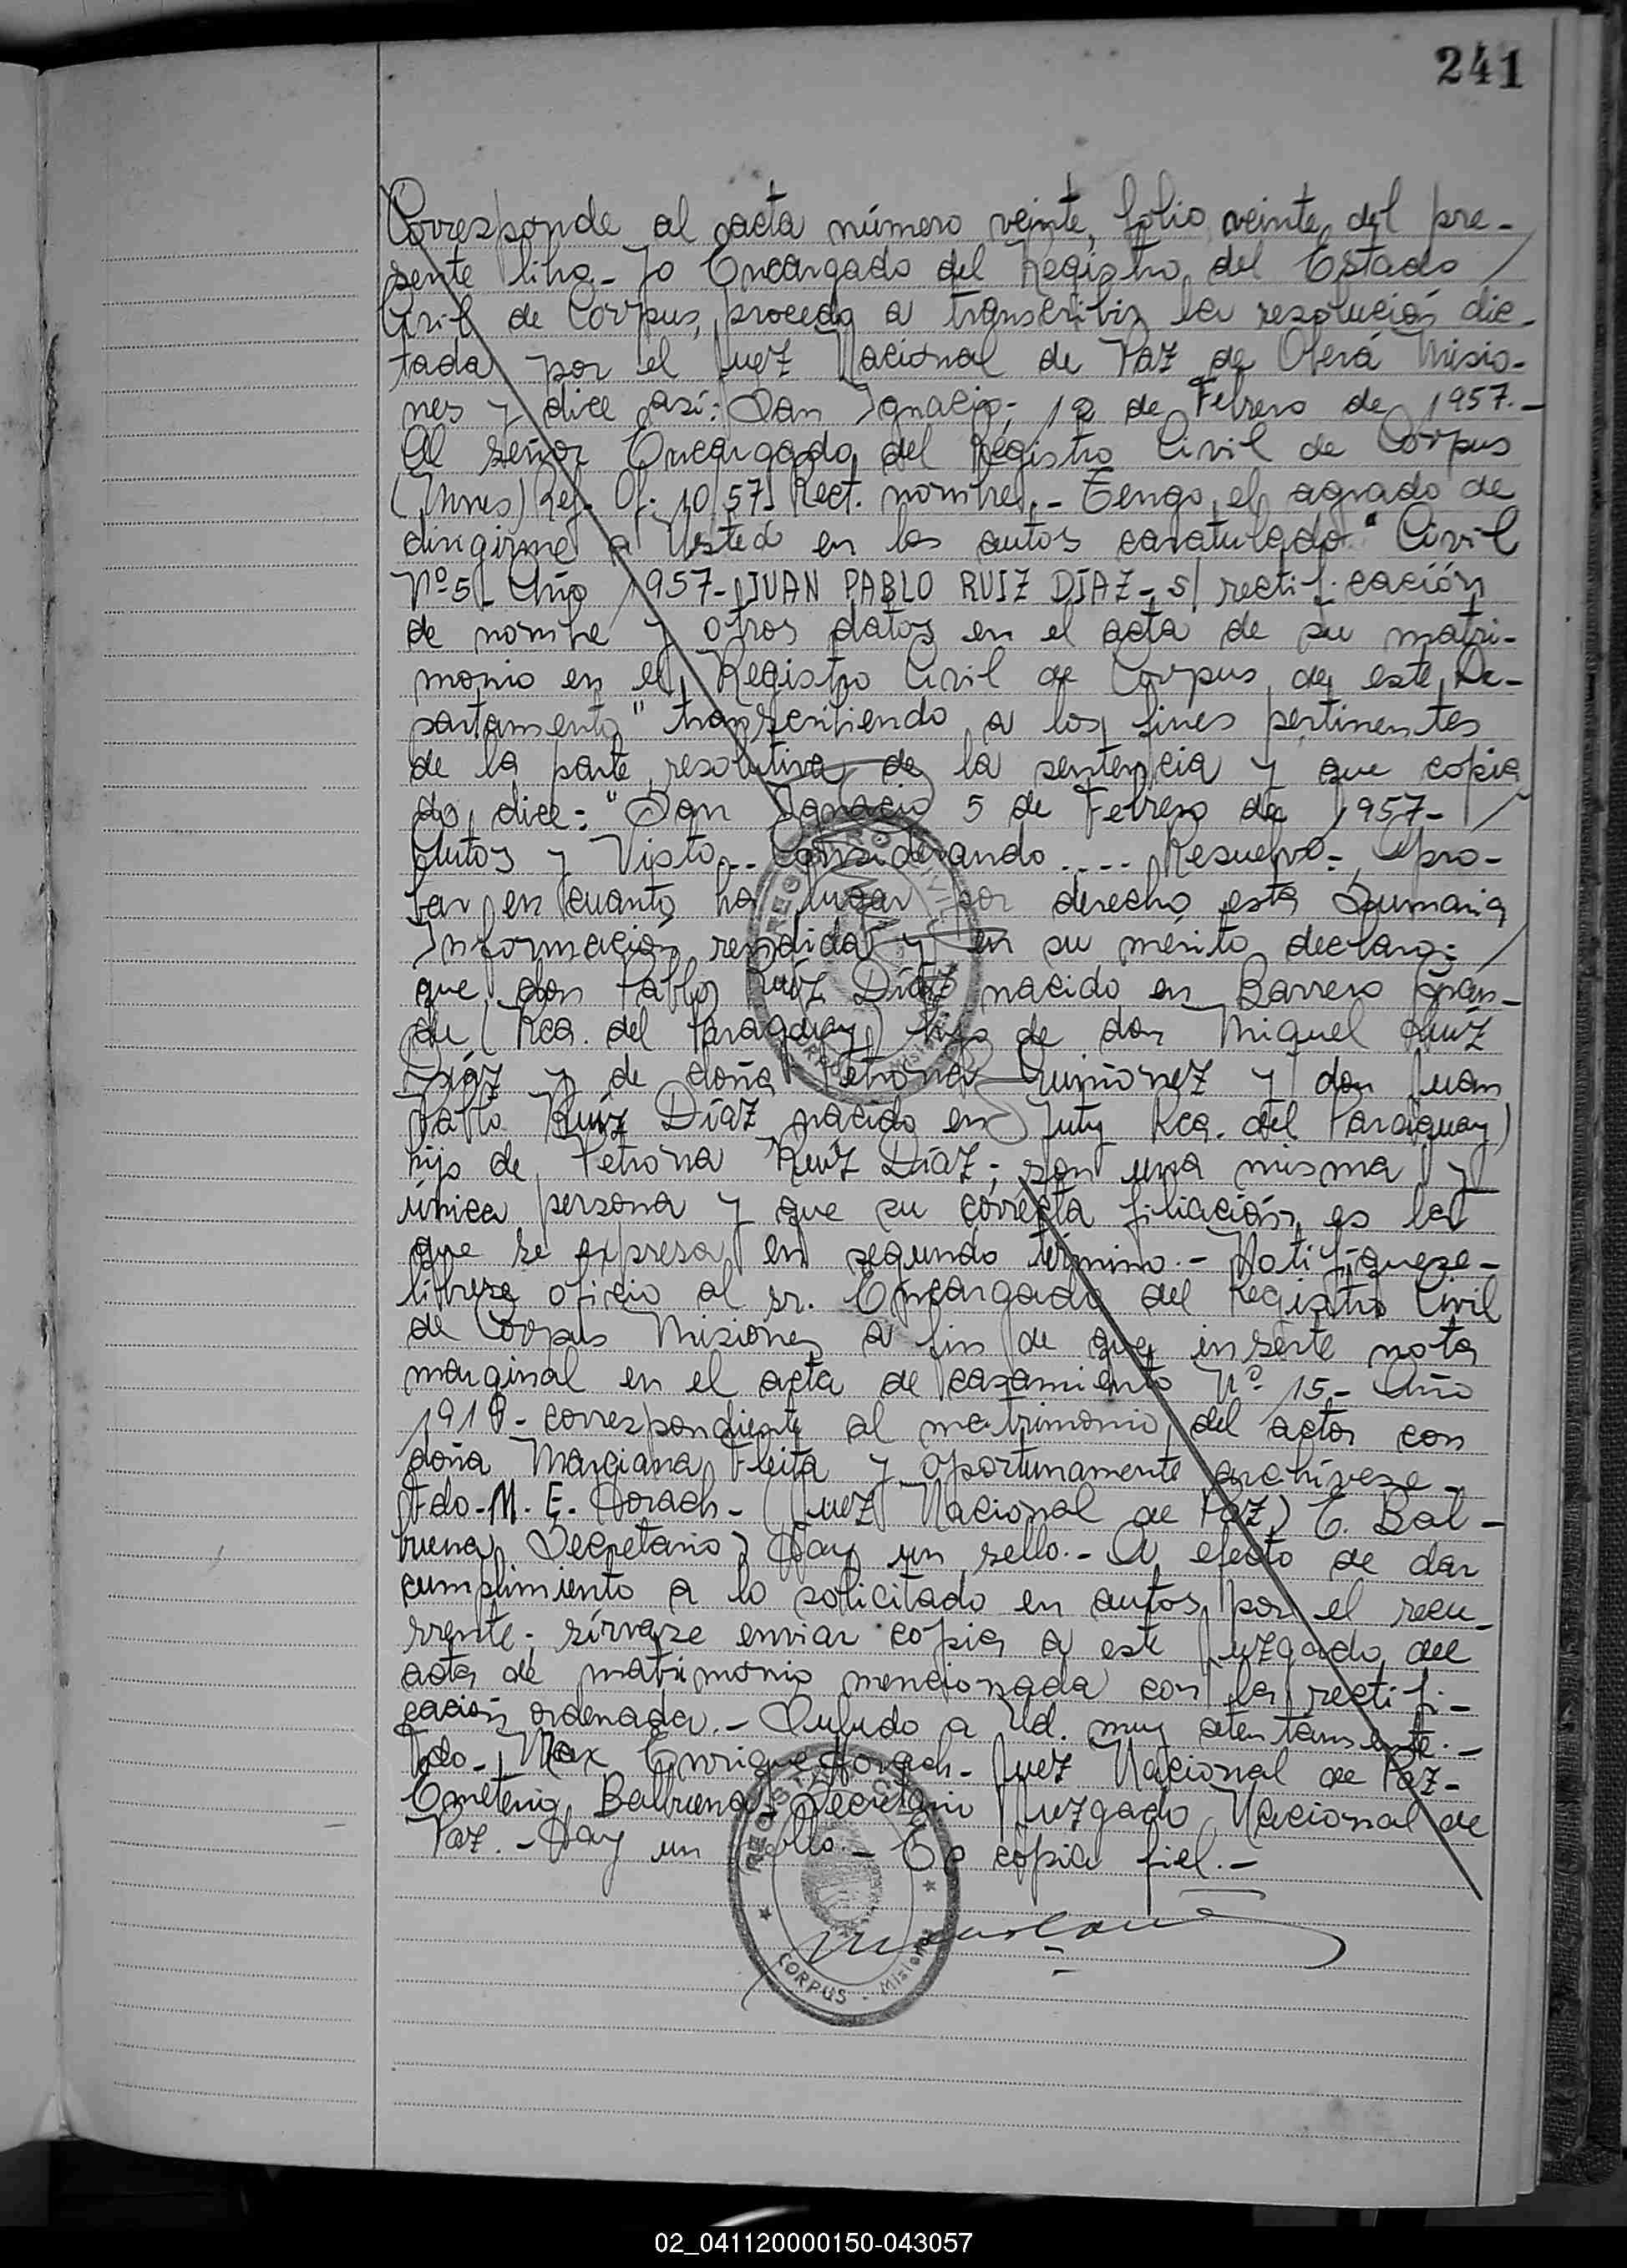 241
Corresponde al acta número veinte, folio veinte, del pre-
sente libro.- Yo Encargado del Registro del Estado /
Civil de Corpus, procedo a transcribir la resolución dic-
tada por el Juez Nacional de Paz de Oberá Misio-
nes y dice así: San Ignacio, 12 de Febrero de 1957.-
Al señor Encargado del Registro Civil de Corpus
(Mnes) Ref. Of. 10/57 Rect. nombre.- Tengo el agrado de
dirigirme a Usted en los autos caratulado "Civil
Nº 5- Año 1957- JUAN PABLO RUIZ DÍAZ- s/ rectificación
de nombre y otros datos en el acta de su matri-
monio en el Registro Civil de Corpus, de este De-
partamento" transcribiendo a los fines pertinentes
de la parte resolutiva de la sentencia y que copia
do, dice: "San Ignacio 5 de Febrero de 1957- /
Autos y Visto.. Considerando .... Resuelvo: Apro-
bar en cuanto ha lugar por derecho esta Sumaria
Información rendida y en su mérito declaro: /
que don Pablo Ruíz Díaz nacido en Barrero Gran-
de (Rca. del Paraguay) hijo de don Miguel Ruíz
Díaz y de doña Petrona Quiñonez y don Juan
Pablo Ruíz Díaz nacido en Yuty Rca. del Paraguay)
hijo de Petrona Ruíz Díaz; son una misma y
única persona y que su correcta filiación es la
que se expresa en segundo término.- Notifíquese-
líbrese oficio al sr. Encargado del Registro Civil
de Corpus Misiones a fin de que inserte nota
marginal en el acta de casamiento Nº 15- Año
1919- correspondiente al matrimonio del actor con
doña Marciana Fleita y oportunamente archívese-
Fdo- M. E. Horach- (Juez Nacional de Paz) E. Bal-
buena Secretario) Hay un sello.- A efecto de dar
cumplimiento a lo solicitado en autos por el recu-
rrente. sírvase enviar copia a este Juzgado del
acta de matrimonio mencionada con la rectifi-
cación ordenada.- Saludo a Ud. muy atentamente.-
Fdo- Max Enrique Horach- Juez Nacional de Paz-
Emeterio Balbuena- Secretario Juzgado Nacional de
Paz.- Hay un sello.- Es copia fiel.-
REGISTRO CIVIL
CORPUS - Misiones
REGISTRO CIVIL
CORPUS - Misiones
02_041120000150-043057